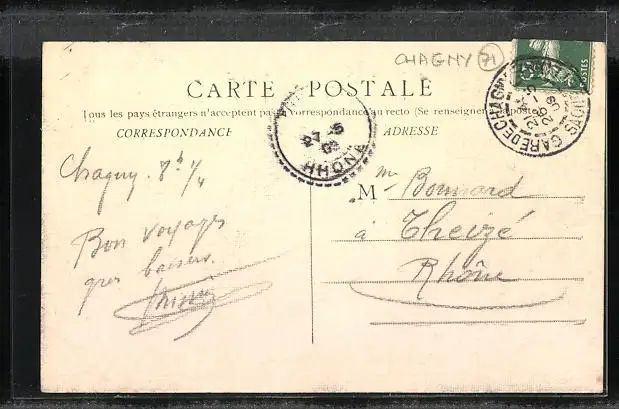 CHAGNY 71
CARTE POSTALE
Tous les pays étrangers n'acceptent pas correspondance au recto (Se renseigner
CORRESPONDANCE
ADRESSE
GARE DE CHAGNY
POSTES
27 - 5
09
RHÔNE
Chagny. 8h 1/4
Bon voyage
gros baisers.
M me Bonnard
à Theizé
Rhône